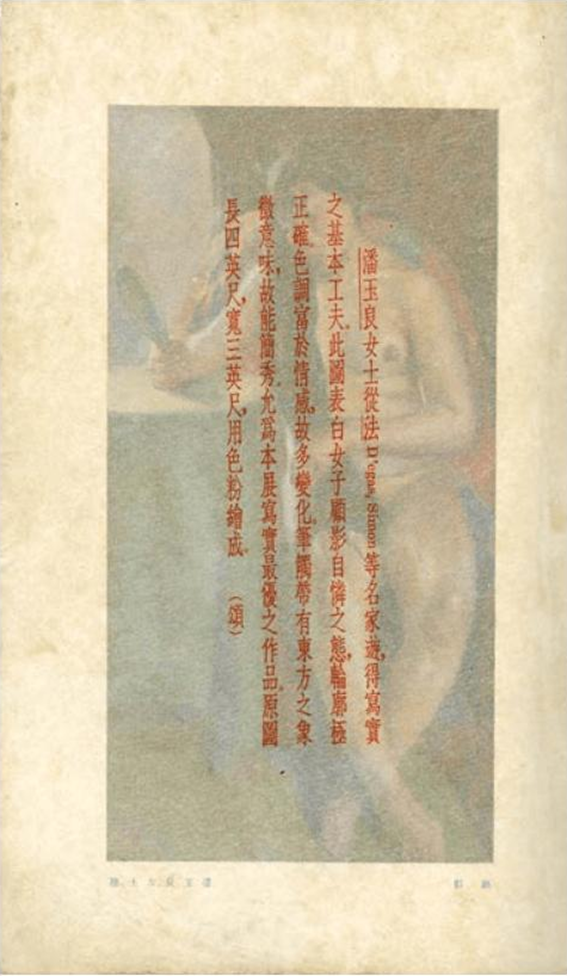 潘玉良女士從法D'egas, Simon等名家遊，得寫實
之基本工夫。此圖表白女子顧影自憐之態，輪廓極
正確。色調富於情感，故多變化。筆觸帶有東方之象
徵意味，故能簡秀。允為本展寫實最優之作品。原圖
長四英尺，寬三英尺，用色粉繪成。　（頌）